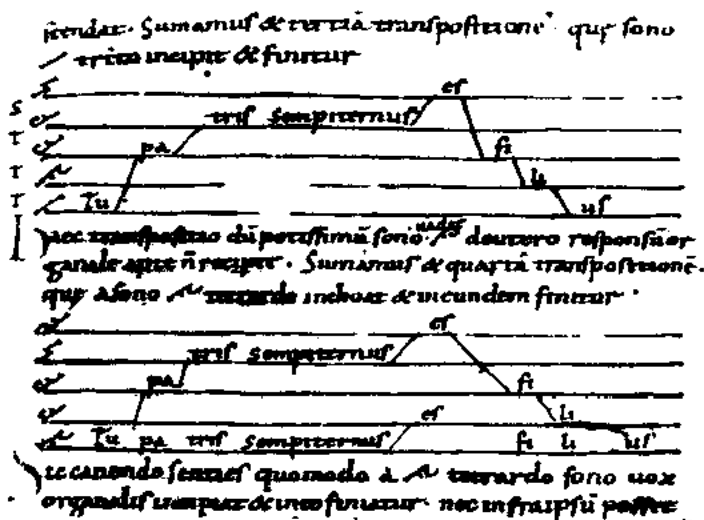 Sumamus & tertiā transpositionē quę sono
trito incipit & finitur
es
tris sempiternus
S
T
T
T
T
pa fi
li
Tu us
aec transpositio dū potissimū sono deutero responsū or
ganale apte n̄ recipit. Sumamus & quartā transpositionē.
quę a sono tetrardo inchoat & in eundem finitur
es
tris sempiternus
pa fi
es li
Tu pa tris sempiternus fi li us
ic canendo senties quomodo a tetrardo sono uox
organalis incipiat & in eo finiatur. nec infra ipsū posset